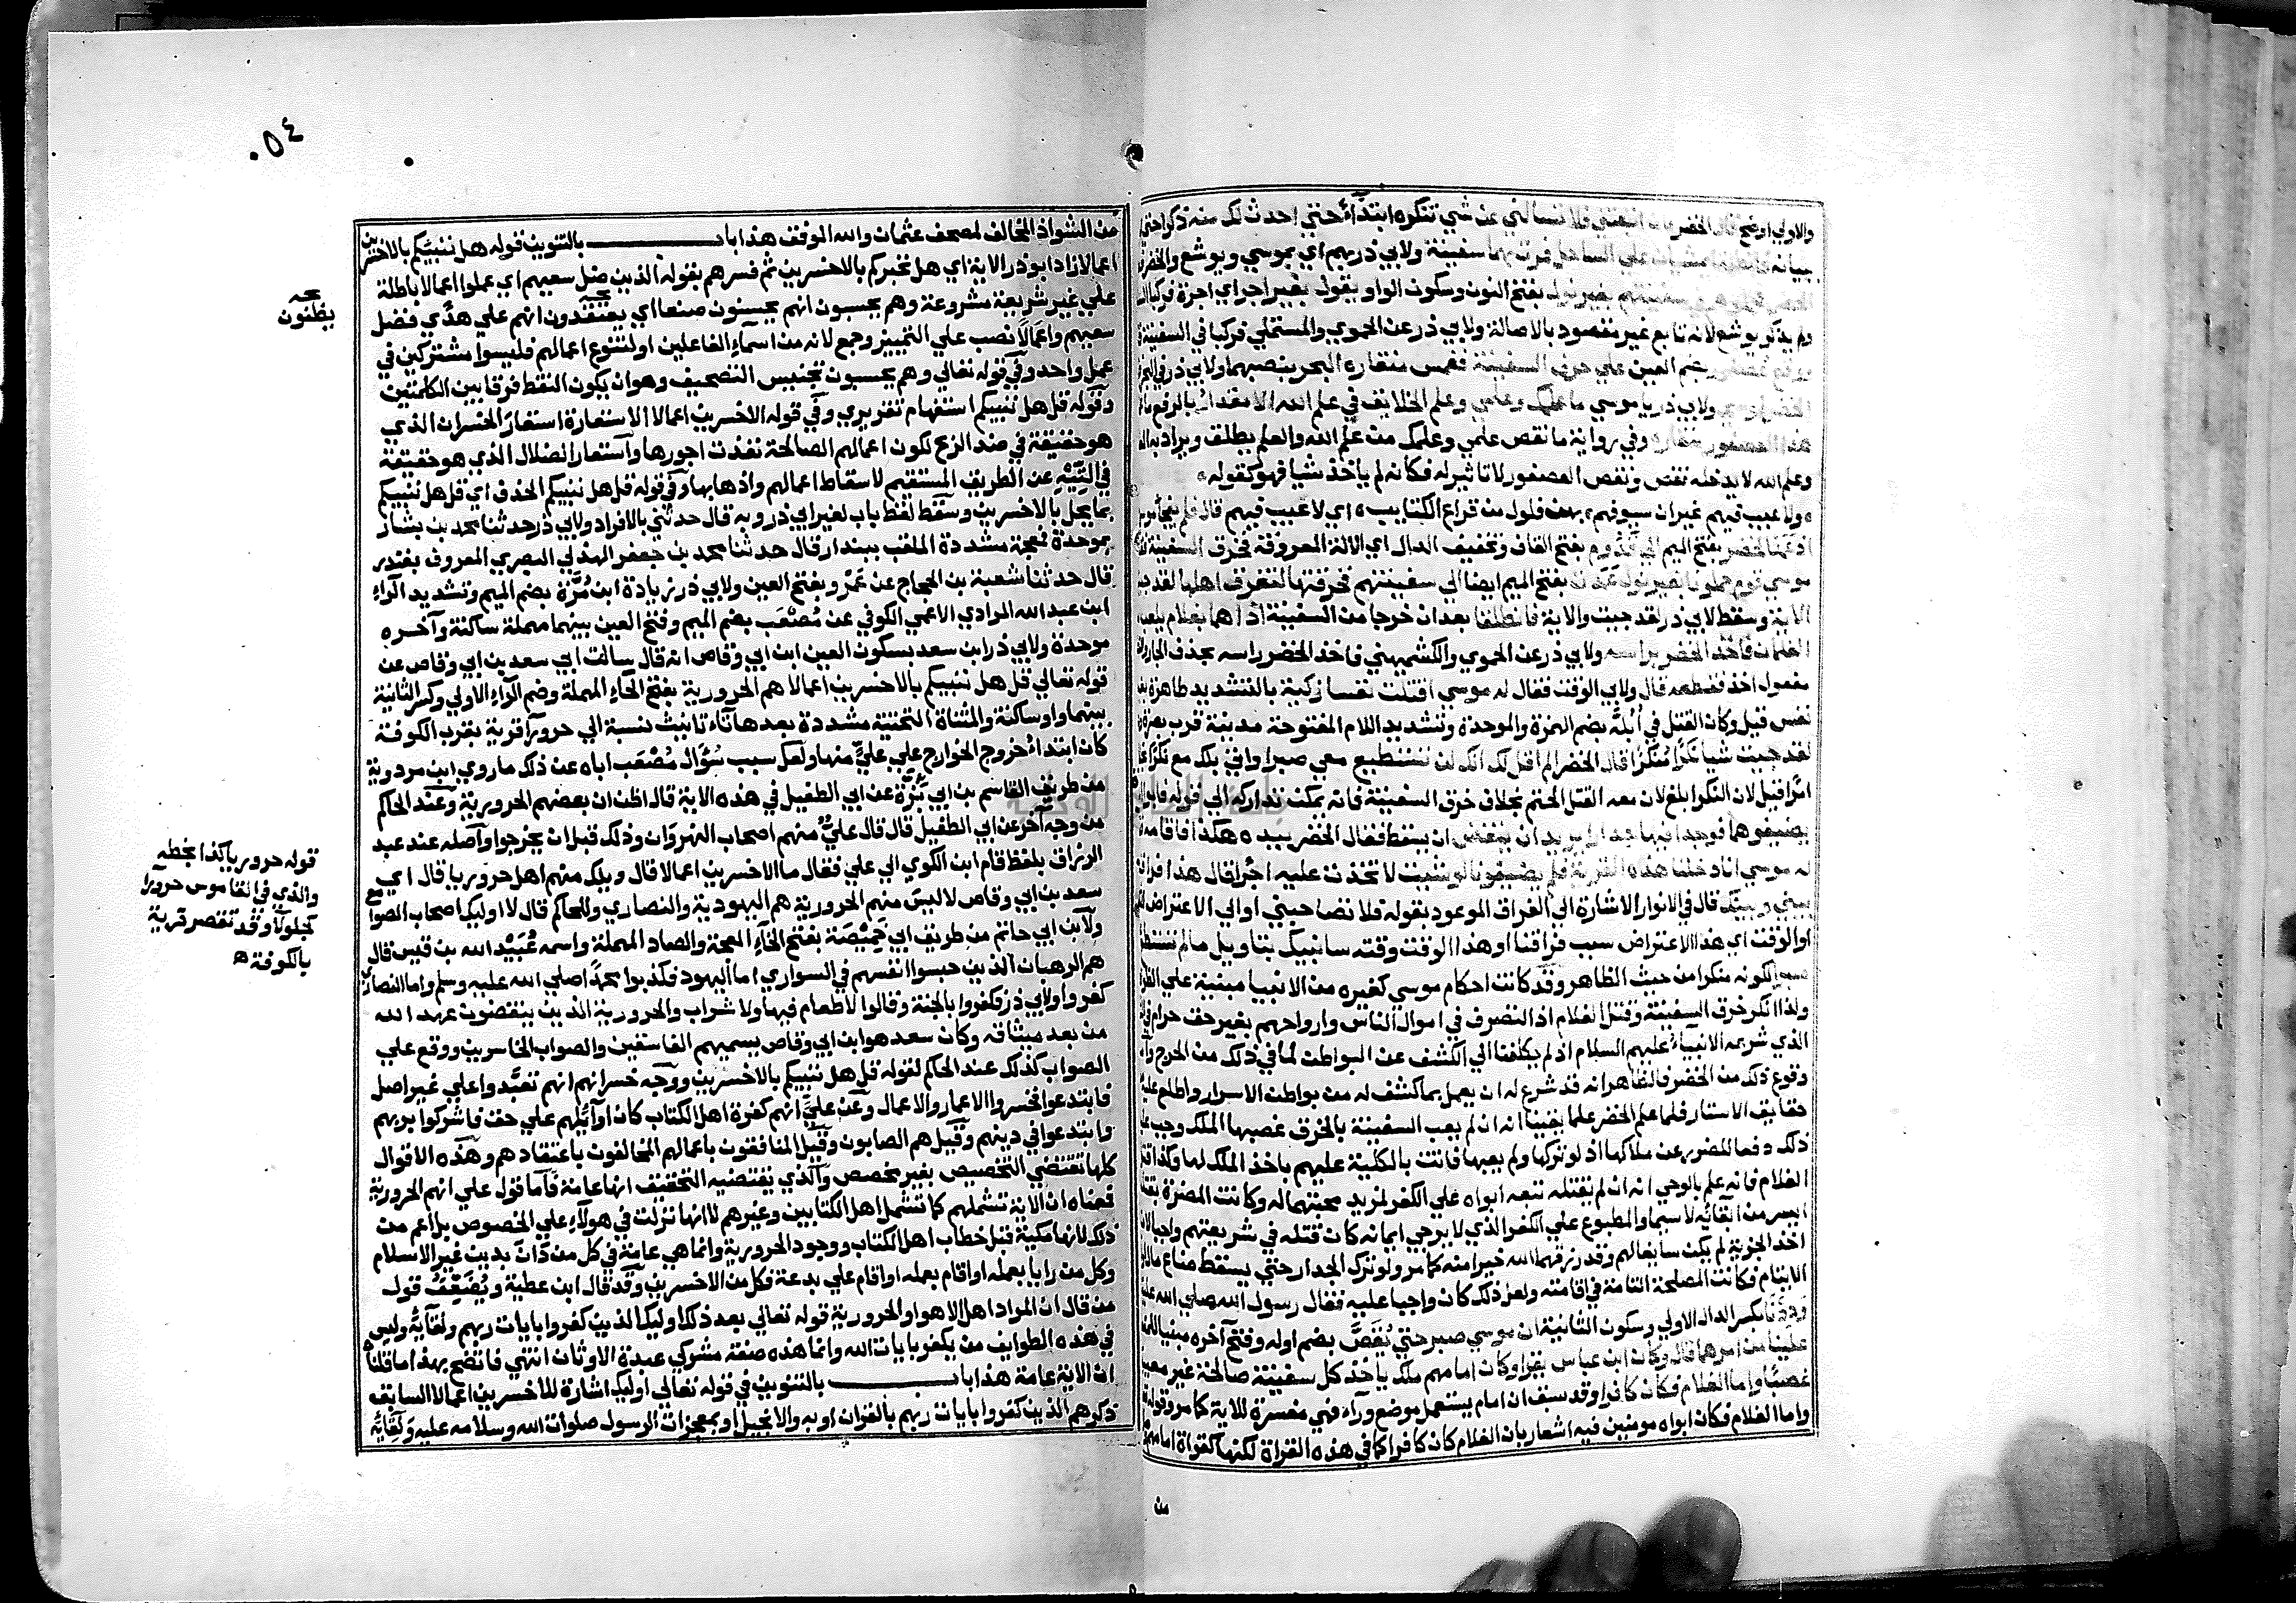 والاولي اوضح قال الخضر فان اتبعتني فلا تسالني عن شي تنكره ابتداءً حتي احدث لك منه ذكرا حتي
سفينة ولابي ذر بهم اي بموسي ويوشع والخضر
بفتح النون وسكون الواو يقول بغير اجر اي اجرة فركبا
ولم يذكر يوشع لانه تابع غير مقصود بالاصالة ولابي ذر عن الحموي والمستملي فركبا في السفينة
بضم العين علي حرف السفينة فغمس منقاره البحر بنصبهما ولابي ذر في البحر
ولابي ذر يا موسي ما علمك وعلمي وعلم الخلايق في علم الله الا مقدارُ بالرفع ما
هذا العصفور منقاره وفي رواية ما نقص علمي وعلمك من علم الله والعلم يطلق ويراد به
وعلم الله لا يدخله نقص ونقص العصفور لا تاثير له فكانه لم ياخذ شيا فهو كقوله
ولا عيب فيهم غير ان سيوفهم بهن فلول من قراع الكتايب اي لا عيب فيهم قال فلم يفجا
الخضر بفتح الميم الي قَدُوم بفتح القاف وتخفيف الدال اي الالة المعروفة فخرق السفينة
موسي قوم حملونا بغير نول عمدت بفتح الميم ايضا الي سفينتهم فخرقتها لتغرق اهلها لقد
الاية وسقط لابي ذر لقد جيت والاية فانطلقا بعد ان خرجا من السفينة اذا هما بغلام يلعب
الغلمان فاخذ الخضر براسه ولابي ذر عن الحموي والكشميهني فاخذ الخضر راسه بحذف الجار
مفعول اخذ فقطعه قال ولابي الوقت فقال له موسي اقتلت نفسا زكية بالتشديد طاهرة
نفس قيل وكان القتل في اُبُلَّة بضم الهمزة والموحدة وتشديد اللام المفتوحة مدينة قرب بصرة
لقد جيت شيا نكرا مُنكرًا قال الخضر الم اقل لك انك لن تستطيع معي صبرا واتي بلك مع نكرا
امرا قيل لان النكرا بلغ لان معه القتل الحتم بخلاف خرق السفينة فانه يمكن تداركه الي قوله فابوا
يضيفوهما فوجدا فيها جدارا يريد ان ينقض ان يسقط فقال الخضر بيده هكذا فاقامه
له موسي انا دخلنا هذه القرية فلم يضيفونا لو شيت لاتخذت عليه اجرا قال هذا فراق
بيني وبينك قال في الانوار الاشارة الي الفراق الموعود بقوله فلا تصاحبني او الي الاعتراض
او الوقت اي هذا الاعتراض سبب فراقنا او هذا الوقت وقته سانبيك بتاويل ما لم تستطع
لكونه منكرا من حيث الظاهر وقد كانت احكام موسي كغيره من الانبيا مبنية علي
ولذا انكر خرق السفينة وقتل الغلام اذ التصرف في اموال الناس وارواحهم بغير حق حرام في
الذي شرعه الانبيآء عليهم السلام اذ لم يكلفنا الي الكشف عن البواطن لما في ذلك من الحرج
وقوع ذلك من الخضر فالظاهر انه قد شرع له ان يعمل بما كشف له من بواطن الاسرار واطلع عليه
حقايق الاستار فلما علم الخضر علما يقينا انه ان لم يعب السفينة بالخرق غصبها الملك وجب
ذلك دفعا للضرر عن ملاكها اذ لو تركها ولم يعبها فاتت بالكلية عليهم باخذ الملك لها وكذا
الغلام فانه علم بالوحي انه ان لم يقتله تبعه ابواه علي الكفر لمزيد محبتهما له وكانت المضرة
ايسر من ابقائه لا سيما والمطبوع علي الكفر الذي لا يرجي ايمانه كان قتله في شريعتهم واجبا
اخذ الجزية لم يكن سايغا لهم وقد رزقهما الله خيرا منه كما مر ولو ترك الجدار حتي يسقط ضاع مال
الايتام فكانت المصلحة التامة في اقامته ولعل ذلك كان واجبا عليه فقال رسول الله صلي الله عليه
وددنا بكسر الدال الاولي وسكون الثانية ان موسي صبر حتي يُقَصَّ بضم اوله وفتح آخره مبنيا
علينا من امرهما قال وكان ابن عباس يقرا وكان امامهم ملك ياخذ كل سفينة صالحة غير معيبة
غصبًا واما الغلام فكان كافرا وقد سبق ان امام يستعمل موضع ورآء فهي مفسرة للاية كما مر وقوله
واما الغلام فكان ابواه مومنين فيه اشعار بان الغلام كان كافرا كما في هذه القراة لكنها كقراة امامهم
من
٠٥٤
من الشواذ المخالف لمصحف عثمان والله الموفق هذا باب بالتنوين قوله هل ننبيكم بالاخسرين
اعمالا زاد ابو ذر الاية اي هل نخبركم بالاخسرين ثم فسرهم بقوله الذين ضل سعيهم اي عملوا اعمالا باطلة
علي غير شريعة مشروعة وهم يحسبون انهم يحسنون صنعا اي يعتقدون انهم علي هدًي فضل
سعيهم واعمالاً نصب علي التمييز وجمع لانه من اسمآء الفاعلين او لتنوع اعمالهم فليسوا مشتركين في
عمل واحد وفي قوله تعالي وهم يحسبون تجنيس التصحيف وهو ان يكون النقط فرقا بين الكلمتين
وقوله قل هل ننبيكم استفهام تقريري وفي قوله الاخسرين اعمالا الاستعارة استعار الخسران الذي
هو حقيقة في ضد الربح لكون اعمالهم الصالحة نفذت اجورها واستعار الضلال الذي هو حقيقة
في التِّيْهِ عن الطريق المستقيم لاسقاط اعمالهم واذهابها وفي قوله قل هل ننبيكم الحذف اي قل هل ننبيكم
بما يحل بالاخسرين وسقط لفظ باب لغير ابي ذر وبه قال حدثني بالافراد ولابي ذر حدثنا محمد بن بشار
بموحدة فمعجمة مشددة الملقب ببندار قال حدثنا محمد بن جعفر الهذلي البصري المعروف بغندر
قال حدثنا شعبة بن الحجاج عن عَمْرو بفتح العين ولابي ذر زيادة ابن مُرَّة بضم الميم وتشديد الرآء
ابن عبد الله المرادي الاعمي الكوفي عن مُصْعَب بضم الميم وفتح العين بينهما مهملة ساكنة وآخره
موحدة ولابي ذر ابن سعد بسكون العين ابن ابي وقاص انه قال سالت ابي سعد بن ابي وقاص عن
قوله تعالي قل هل ننبيكم بالاخسرين اعمالا هم الحرورية بفتح الحآء المهملة وضم الرآء الاولي وكسر الثانية
بينهما واو ساكنة والمثناة التحتية مشددة بعدها تآء تانيث نسبة الي حرورآ قرية بقرب الكوفة
كان ابتداءُ خروج الخوارج علي عليٍّ منها ولعل سبب سُؤَال مُصْعَب اباه عن ذلك ما روي ابن مردوية
من طريق القاسم بن ابي بَزَّة عن ابي الطفيل في هذه الاية قال اظن ان بعضهم الحرورية وعند الحاكم
من وجه آخر عن ابي الطفيل قال قال عليٌّ منهم اصحاب النهروان وذلك قبل ان يخرجوا واصله عند عبد
الرزاق بلفظ قام ابن الكوي الي علي فقال ما الاخسرين اعمالا قال ويلك منهم اهل حروريا قال اي
سعد بن ابي وقاص لا ليس منهم الحرورية هم اليهودية والنصاري وللحاكم قال لا اوليك اصحاب الصوامع
ولابن ابي حاتم من طريق ابي خَمِيْصَة بفتح الخآء المعجمة والصاد المهملة واسمه عُبَيْد الله بن قيس قال
هم الرهبان الذين حبسوا انفسهم في السواري اما اليهود فكذبوا محمدًا صلي الله عليه وسلم واما النصاري
كفروا ولابي ذر فكفروا بالجنة وقالوا لا طعام فيها ولا شراب والحرورية الذين ينقضون عهد الله
من بعد ميثاقه وكان سعد هو ابن ابي وقاص يسميهم الفاسقين والصواب الخاسرين ووقع علي
الصواب كذلك عند الحاكم لقوله قل هل ننبيكم بالاخسرين ووجه خسرانهم انهم تعبَّدوا علي غير اصل
فابتدعوا فخسروا الاعمار والاعمال وعن عليٍّ انهم كفرة اهل الكتاب كان اوآئلهم علي حق فاشركوا بربهم
وابتدعوا في دينهم وقيل هم الصابون وقيل المنافقون باعمالهم المخالفون باعتقادهم وهذه الاقوال
كلها تقتضي التخصيص بغير مخصص والذي يقتضيه التحقيق انها عامة فاما قول علي انهم الحرورية
فمعناه ان الاية تشملهم كما تشمل اهل الكتابين وغيرهم لا انها نزلت في هولآء علي الخصوص بل اعم من
ذلك لانها مكية قبل خطاب اهل الكتاب ووجود الحرورية وانما هي عامة في كل من دَانَ بدين غير الاسلام
وكل من رايا بعمله او اقام بعمله او اقام علي بدعة فكل من الاخسرين وقد قال ابن عطية ويُضَعِّفُ قول
من قال ان المراد اهل الاهوا والحرورية قوله تعالي بعد ذلك اوليك الذين كفروا بايات ربهم ولقآئه وليس
في هذه الطوايف من يكفر بايات الله وانما هذه صفة مشركي عبدة الاوثان انتهي فاتضح بهذا ما قلناه
ان الاية عامة هذا باب بالتنوين في قوله تعالي اوليك اشارة للاخسرين اعمالا السابق
ذكرهم الذين كفروا بايات ربهم بالقران او به والانجيل او بمعجزات الرسول صلوات الله وسلامه عليه ولقآئه
يظنون
قوله حروريا كذا بخطه
والذي في القاموس حرورآ
كجلولآ وقد تقصر قرية
بالكوفة ه